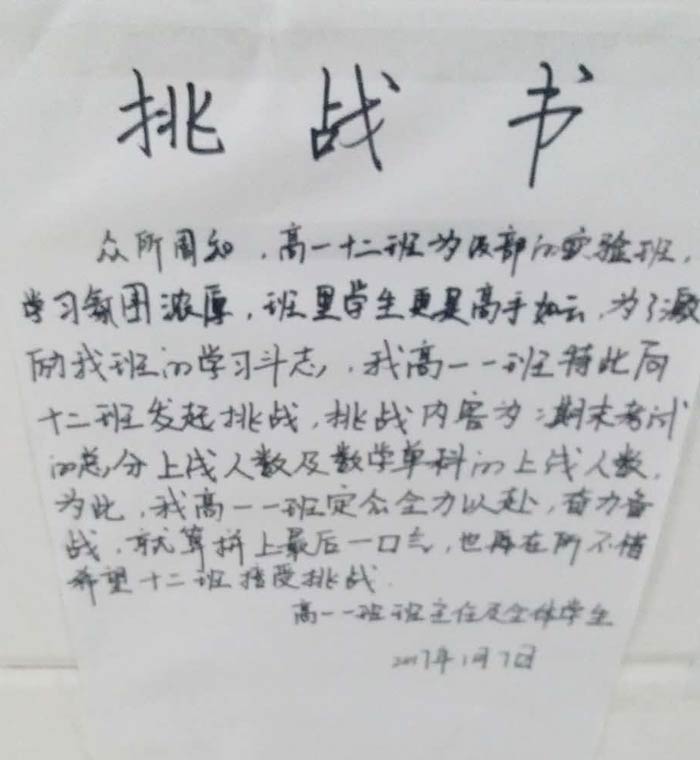 挑战书
众所周知，高一十二班为级部的实验班，
学习氛围浓厚，班里学生更是高手如云，为了激
励我班的学习斗志，我高一一班特此向
十二班发起挑战，挑战内容为：期末考试
的总分上线人数及数学单科的上线人数，
为此，我高一一班定会全力以赴，奋力备
战，就算拼上最后一口气，也再在所不惜
希望十二班接受挑战.
高一一班班主任及全体学生
2017年1月7日